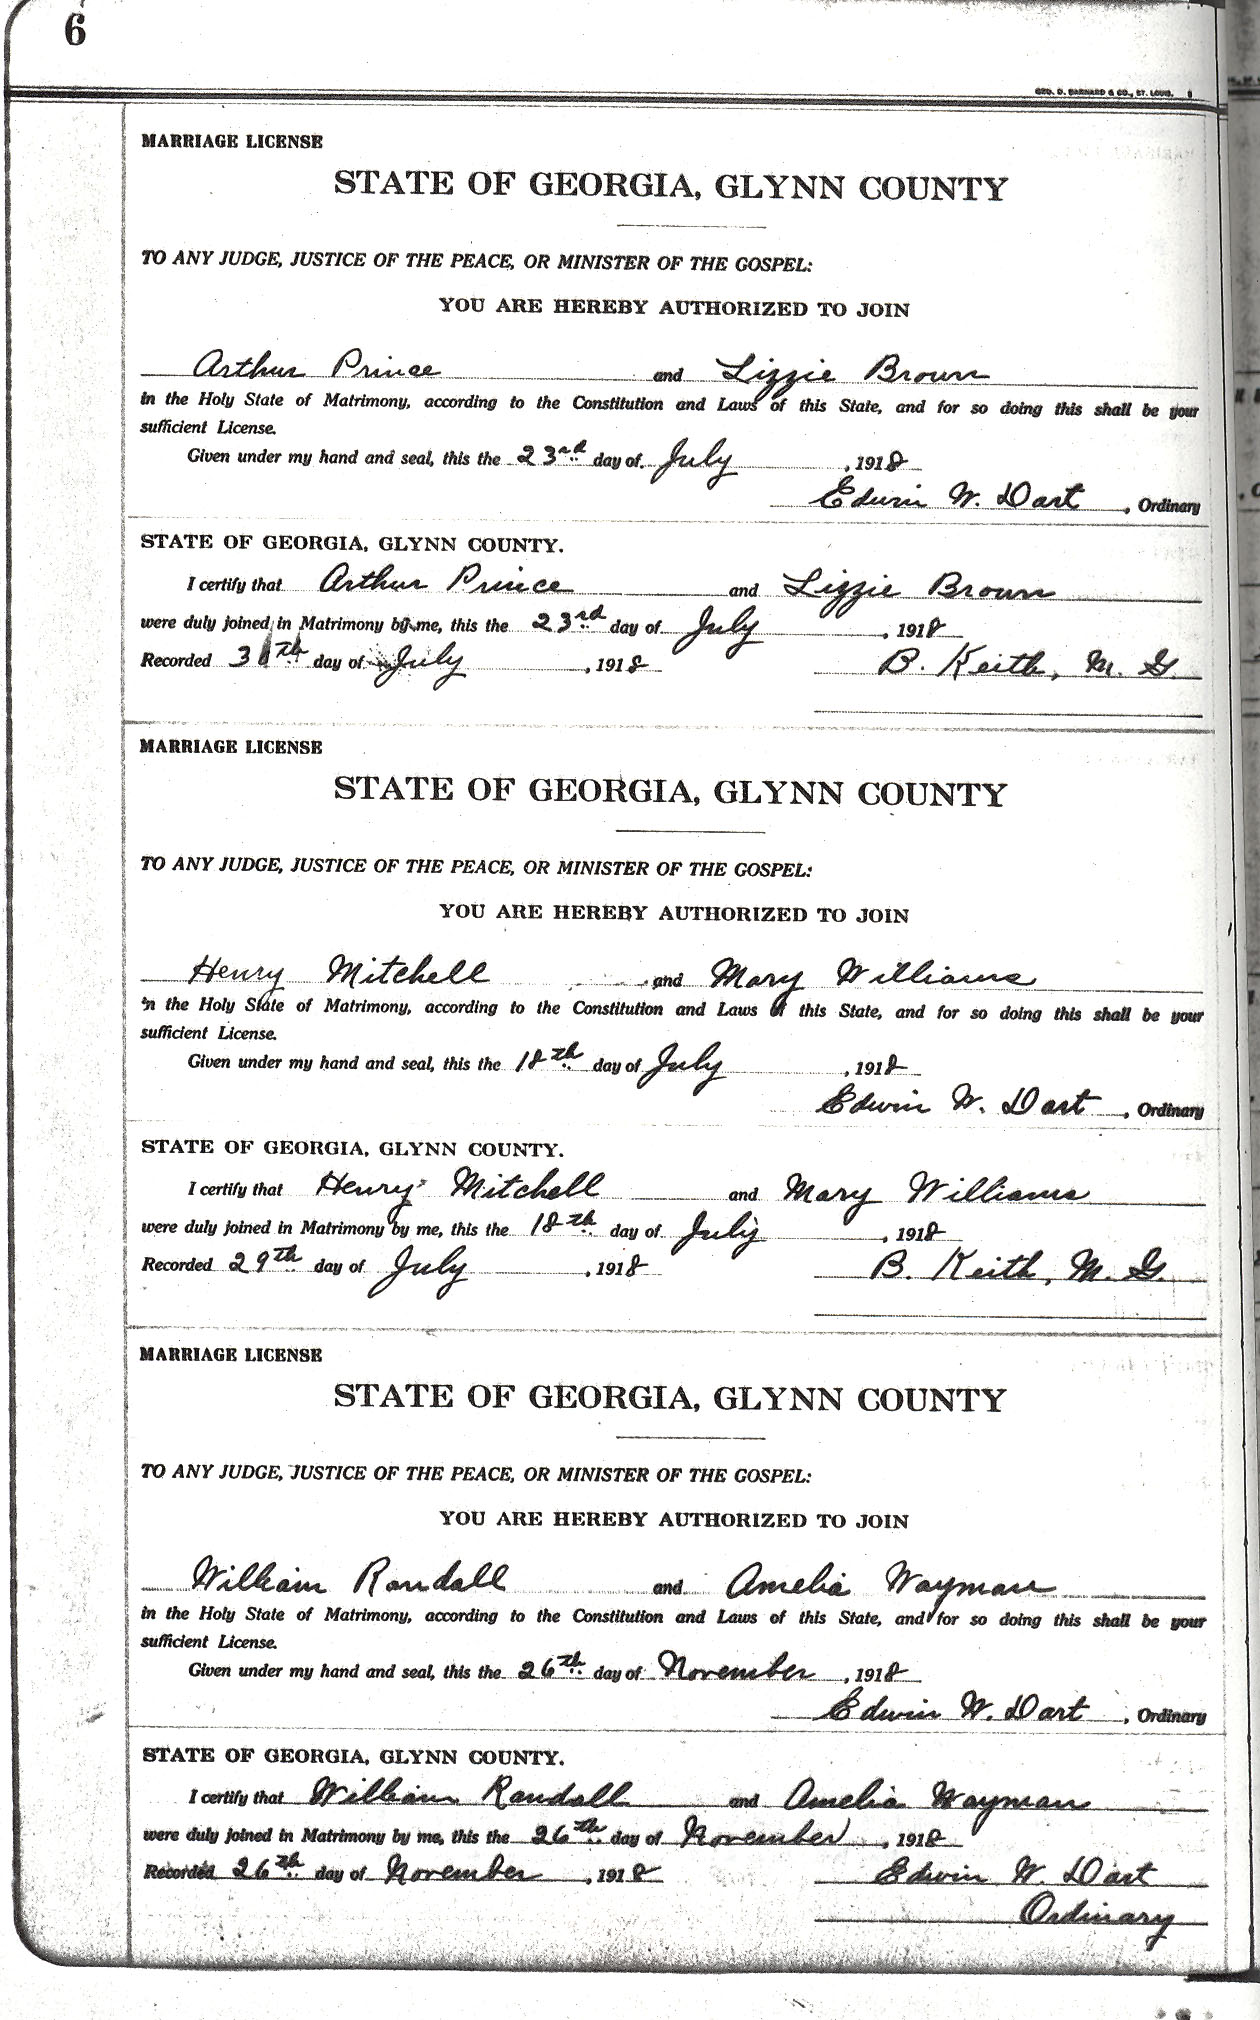 6
GEO. D. BARNARD & CO., ST. LOUIS.
MARRIAGE LICENSE
STATE OF GEORGIA, GLYNN COUNTY
TO ANY JUDGE, JUSTICE OF THE PEACE, OR MINISTER OF THE GOSPEL:
YOU ARE HEREBY AUTHORIZED TO JOIN
Arthur Prince and Lizzie Brown
in the Holy State of Matrimony, according to the Constitution and Laws of this State, and for so doing this shall be your
sufficient License.
Given under my hand and seal, this the 23rd day of July, 1918
Edwin W. Dart, Ordinary
STATE OF GEORGIA, GLYNN COUNTY.
I certify that Arthur Prince and Lizzie Brown
were duly joined in Matrimony by me, this the 23rd day of July, 1918
Recorded day of July, 1918 B. Keith, M. G.
MARRIAGE LICENSE
STATE OF GEORGIA, GLYNN COUNTY
TO ANY JUDGE, JUSTICE OF THE PEACE, OR MINISTER OF THE GOSPEL:
YOU ARE HEREBY AUTHORIZED TO JOIN
Henry Mitchell and Mary Williams
in the Holy State of Matrimony, according to the Constitution and Laws of this State, and for so doing this shall be your
sufficient License.
Given under my hand and seal, this the 18th day of July, 1918
Edwin W. Dart, Ordinary
STATE OF GEORGIA, GLYNN COUNTY.
I certify that Henry Mitchell and Mary Williams
were duly joined in Matrimony by me, this the 18th day of July, 1918
Recorded 29th day of July, 1918 B. Keith, M. G.
MARRIAGE LICENSE
STATE OF GEORGIA, GLYNN COUNTY
TO ANY JUDGE, JUSTICE OF THE PEACE, OR MINISTER OF THE GOSPEL:
YOU ARE HEREBY AUTHORIZED TO JOIN
William Randall and Amelia Wayman
in the Holy State of Matrimony, according to the Constitution and Laws of this State, and for so doing this shall be your
sufficient License.
Given under my hand and seal, this the 26th day of November, 1918
Edwin W. Dart, Ordinary
STATE OF GEORGIA, GLYNN COUNTY.
I certify that William Randall and Amelia Wayman
were duly joined in Matrimony by me, this the 26th day of November, 1918
Recorded 26th day of November, 1918 Edwin W. Dart
Ordinary